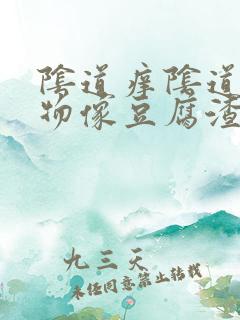 陰道痒陰道
物像豆腐渣
九三天
未经同意禁止转载